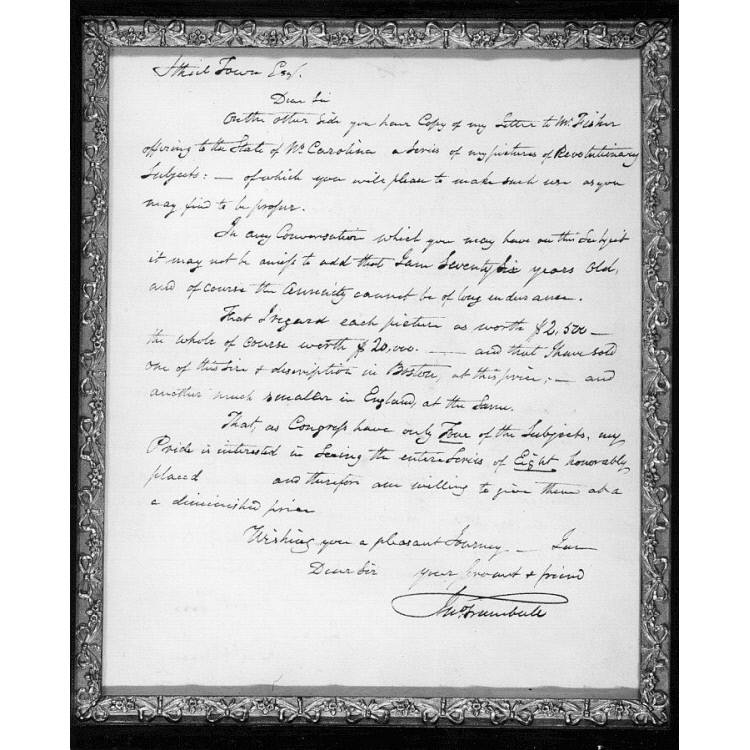 Ithiel Town Esq.
Dear Sir
On the other side you have Copy of my Letter to Mr. Fisher
offering to the State of No. Carolina a Series of my pictures of Revolutionary
Subjects: — of which you will please to make such use as you
may find to be proper.
In any Conversation which you may have on this Subject
it may not be amiss to add that I am Seventy Six years old,
and of course the Annuity cannot be of long endurance.
That I regard each picture as worth $2,500 —
the whole of course worth $20,000. — and that I have sold
one of this Size & description in Boston, at this price; — and
another much smaller in England, at the Same.
That, as Congress have only Four of the Subjects, my
Pride is interested in Seeing the entire Series of Eight honorably
placed and therefore am willing to give them at a
a diminished price
Wishing you a pleasant Journey — I am
Dear Sir your Servant & friend
Jno. Trumbull